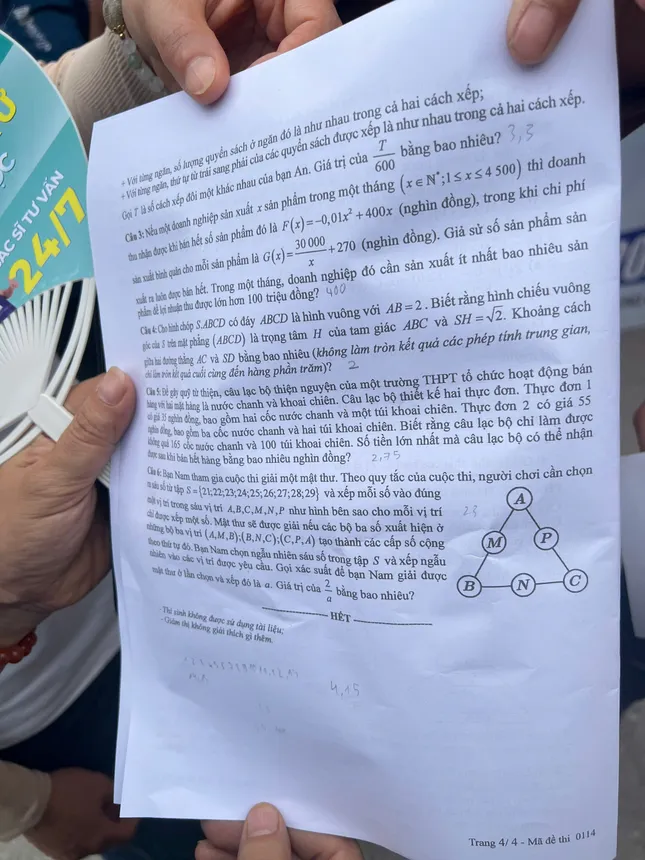 + Với từng ngăn, số lượng quyển sách ở ngăn đó là như nhau trong cả hai cách xếp;
+ Với từng ngăn, thứ tự từ trái sang phải của các quyển sách được xếp là như nhau trong cả hai cách xếp.
Gọi T là số cách xếp đôi một khác nhau của bạn An. Giá trị của T/600 bằng bao nhiêu? 3,3
Câu 3: Nếu một doanh nghiệp sản xuất x sản phẩm trong một tháng (x ∈ N*; 1 ≤ x ≤ 4 500) thì doanh
thu nhận được khi bán hết số sản phẩm đó là F(x) = −0,01x² + 400x (nghìn đồng), trong khi chi phí
sản xuất bình quân cho mỗi sản phẩm là G(x) = 30 000/x + 270 (nghìn đồng). Giả sử số sản phẩm sản
xuất ra luôn được bán hết. Trong một tháng, doanh nghiệp đó cần sản xuất ít nhất bao nhiêu sản
phẩm để lợi nhuận thu được lớn hơn 100 triệu đồng? 400
Câu 4: Cho hình chóp S.ABCD có đáy ABCD là hình vuông với AB = 2. Biết rằng hình chiếu vuông
góc của S trên mặt phẳng (ABCD) là trọng tâm H của tam giác ABC và SH = √2. Khoảng cách
giữa hai đường thẳng AC và SD bằng bao nhiêu (không làm tròn kết quả các phép tính trung gian,
chỉ làm tròn kết quả cuối cùng đến hàng phần trăm)? 2
Câu 5: Để gây quỹ từ thiện, câu lạc bộ thiện nguyện của một trường THPT tổ chức hoạt động bán
hàng với hai mặt hàng là nước chanh và khoai chiên. Câu lạc bộ thiết kế hai thực đơn. Thực đơn 1
có giá 35 nghìn đồng, bao gồm hai cốc nước chanh và một túi khoai chiên. Thực đơn 2 có giá 55
nghìn đồng, bao gồm ba cốc nước chanh và hai túi khoai chiên. Biết rằng câu lạc bộ chỉ làm được
không quá 165 cốc nước chanh và 100 túi khoai chiên. Số tiền lớn nhất mà câu lạc bộ có thể nhận
được sau khi bán hết hàng bằng bao nhiêu nghìn đồng? 2,75
Câu 6: Bạn Nam tham gia cuộc thi giải một mật thư. Theo quy tắc của cuộc thi, người chơi cần chọn
ra sáu số từ tập S = {21;22;23;24;25;26;27;28;29} và xếp mỗi số vào đúng
một vị trí trong sáu vị trí A,B,C,M,N,P như hình bên sao cho mỗi vị trí
chỉ được xếp một số. Mật thư sẽ được giải nếu các bộ ba số xuất hiện ở
những bộ ba vị trí (A,M,B);(B,N,C);(C,P,A) tạo thành các cấp số cộng
theo thứ tự đó. Bạn Nam chọn ngẫu nhiên sáu số trong tập S và xếp ngẫu
nhiên vào các vị trí được yêu cầu. Gọi xác suất để bạn Nam giải được
mật thư ở lần chọn và xếp đó là a. Giá trị của 2/a bằng bao nhiêu?
A
M P
B N C
HẾT
- Thí sinh không được sử dụng tài liệu;
- Giám thị không giải thích gì thêm.
4,15
Trang 4/ 4 - Mã đề thi 0114
SĨ TƯ VẤN
24/7